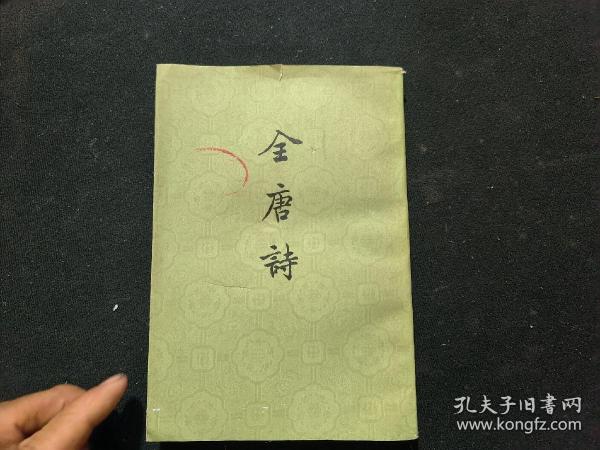 全唐詩
孔夫子旧書网
www.kongfz.com